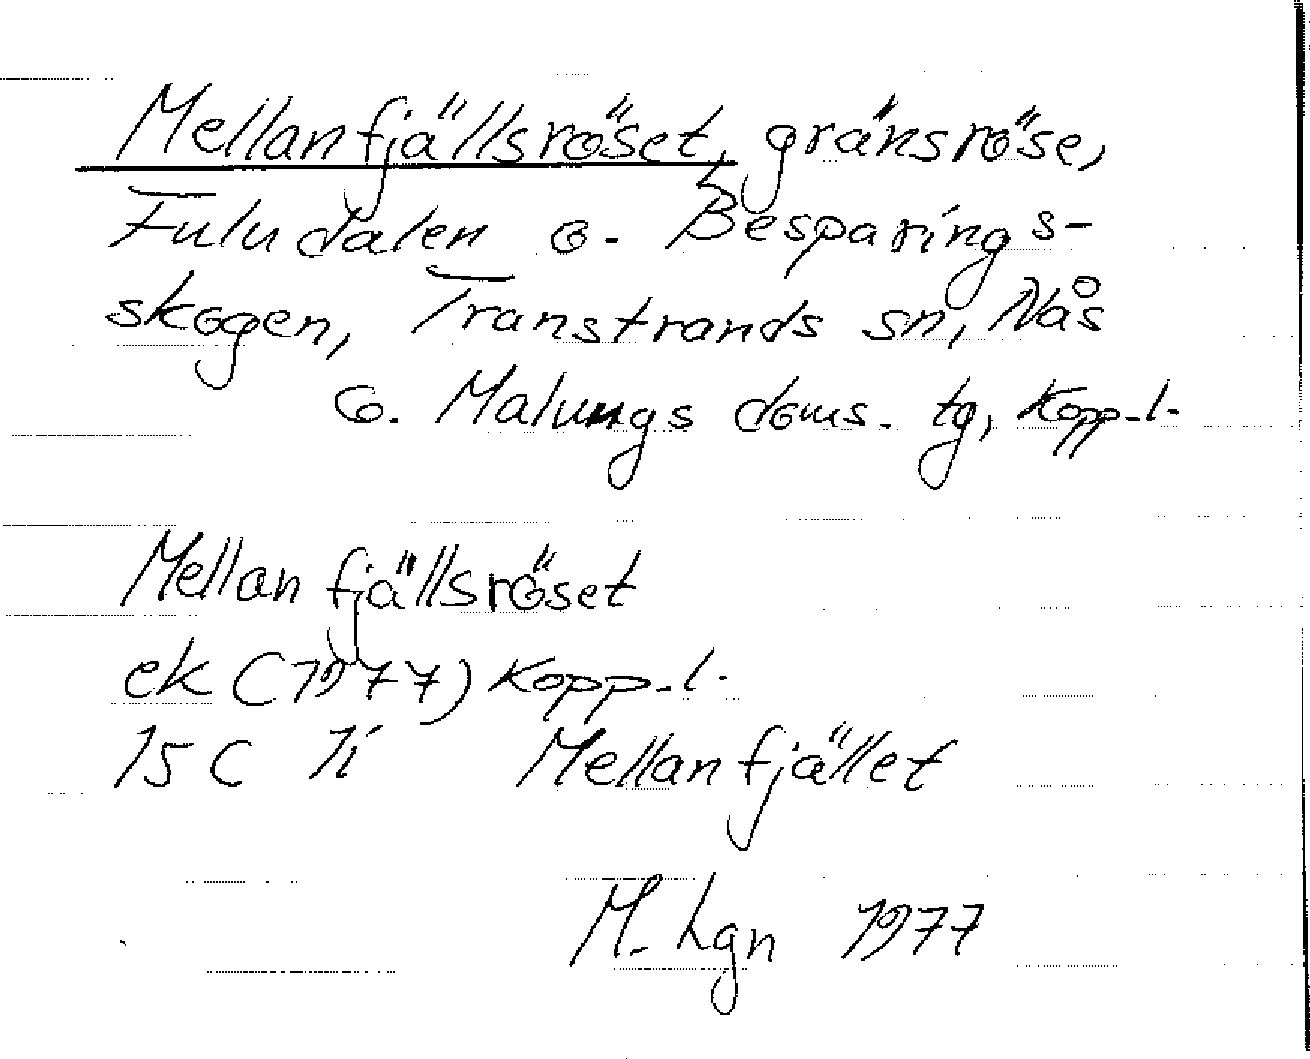 Mellanfjällsröset, gränsröse,
Fuludalen o. Besparings-
skogen, Transtrands sn, Nås
o. Malungs doms. tg, Kopp. l.
Mellanfjällsröset
ek (1977) Kopp. l.
15 C 1i Mellanfjället
M. Lgn 1977